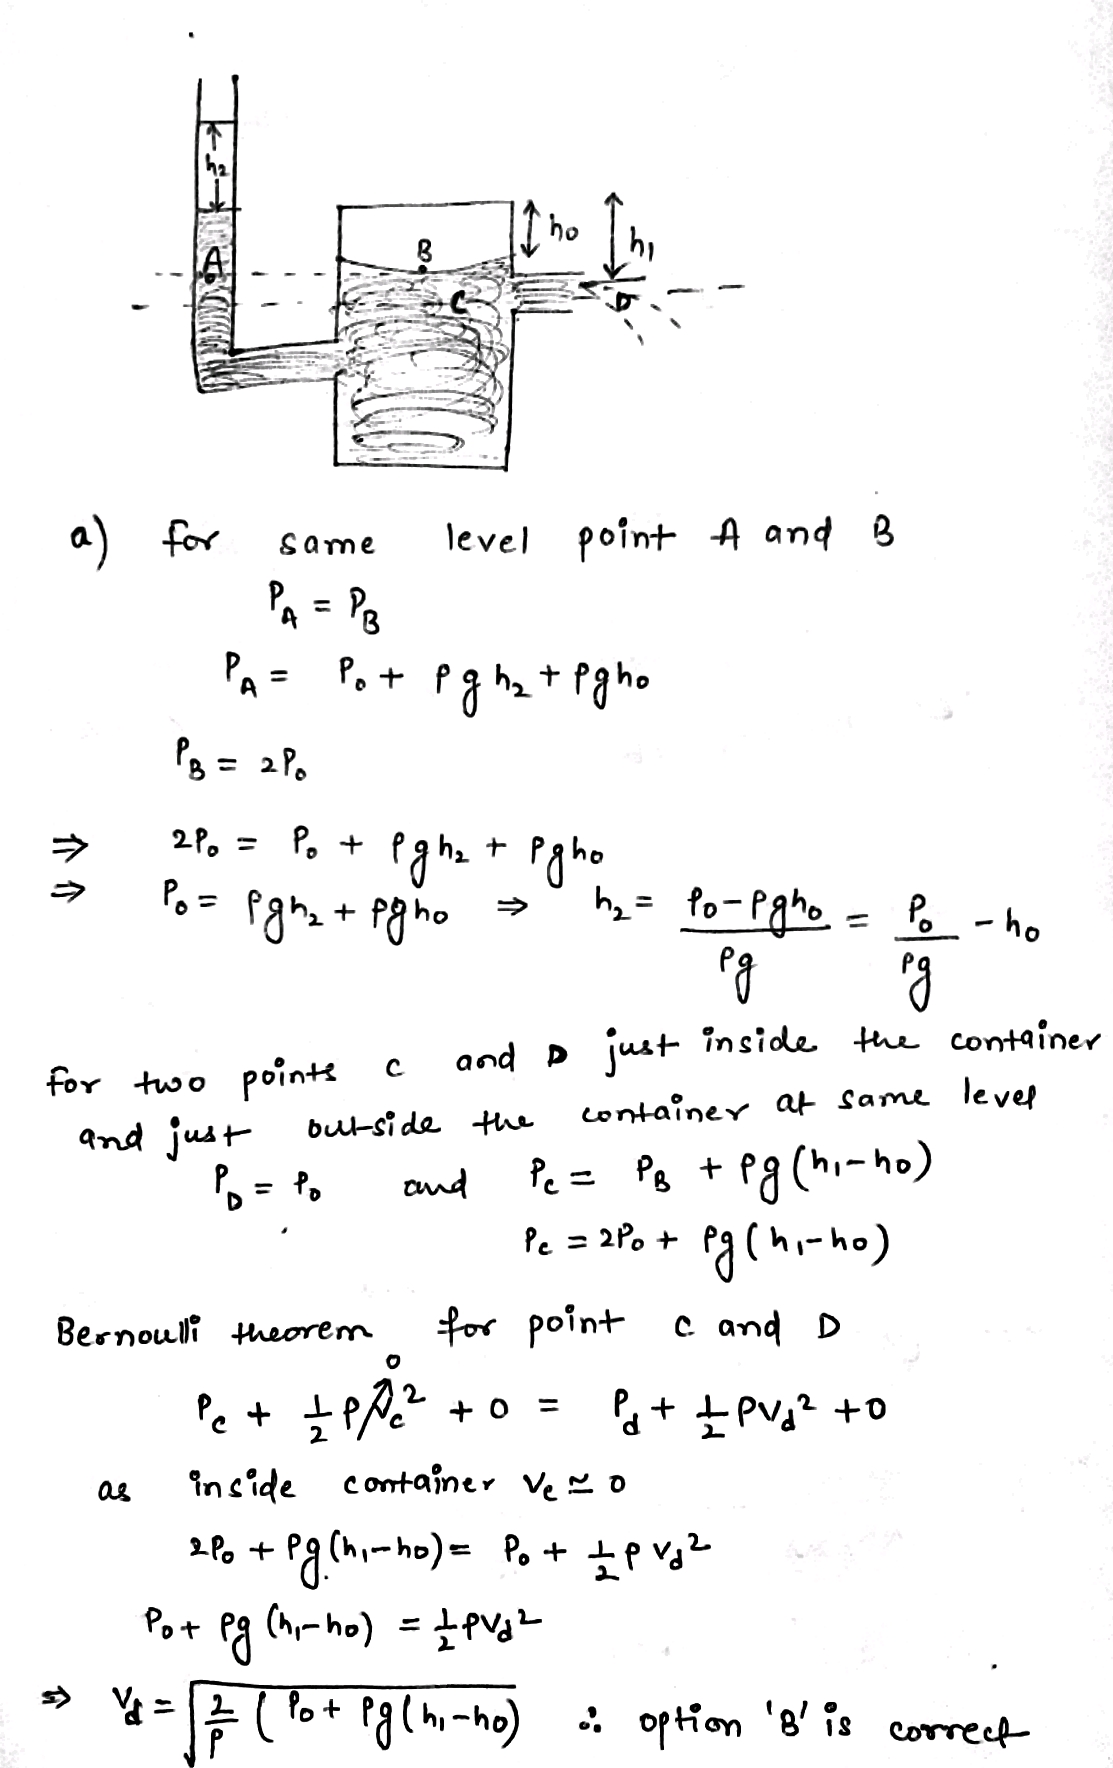 h₂
A
B
C
h₀
h₁
D
a) for same level point A and B
P_A = P_B
P_A = P₀ + ρgh₂ + ρgh₀
P_B = 2P₀
⇒ 2P₀ = P₀ + ρgh₂ + ρgh₀
⇒ P₀ = ρgh₂ + ρgh₀ ⇒ h₂ = (P₀ - ρgh₀)/ρg = P₀/ρg - h₀
for two points C and D just inside the container
and just out-side the container at same level
P_D = P₀ and P_c = P_B + ρg(h₁-h₀)
P_c = 2P₀ + ρg(h₁-h₀)
Bernoulli theorem for point C and D
P_c + ½ρv_c²↗0 + 0 = P_d + ½ρv_d² + 0
as inside container v_c ≃ 0
2P₀ + ρg.(h₁-h₀) = P₀ + ½ρv_d²
P₀ + ρg(h₁-h₀) = ½ρv_d²
⇒ v_d = √(2/ρ (P₀ + ρg(h₁-h₀)) ∴ option 'B' is correct